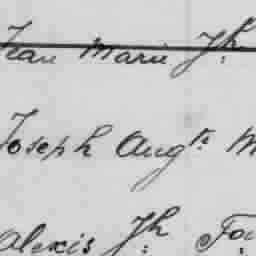 Jean Marie Jh
Joseph Augte M
Alexis Jh Fou